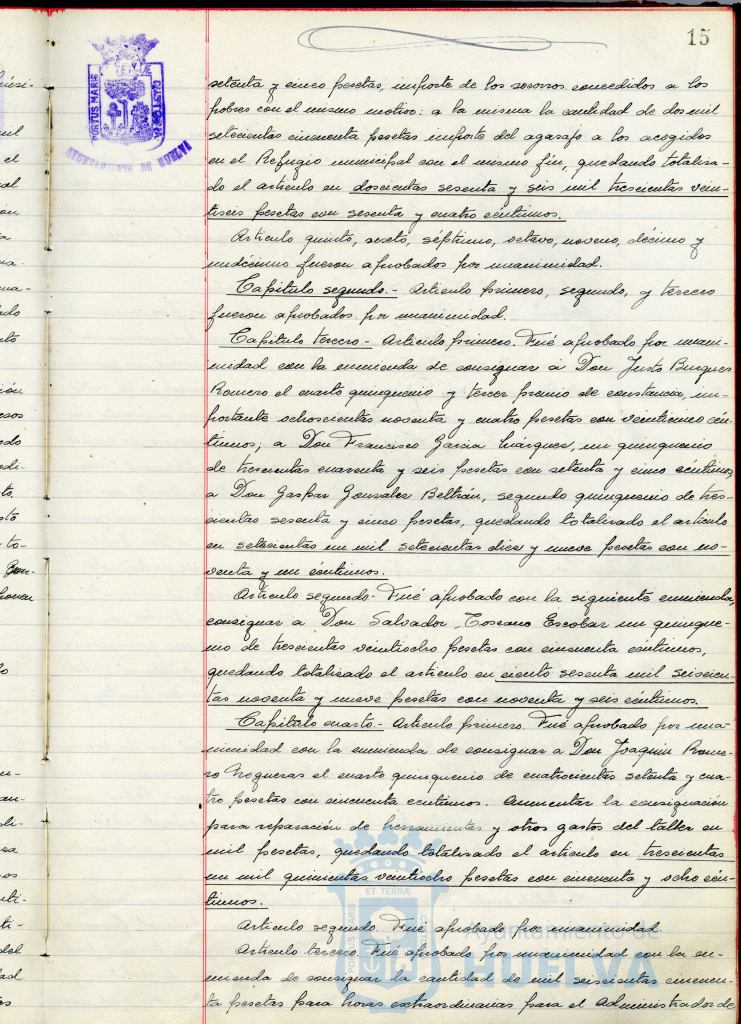 15
PORTUS MARIS
AYUNTAMIENTO DE HUELVA
setenta y cinco pesetas, importe de los socorros concedidos a los
pobres con el mismo motivo: a la misma la cantidad de dos mil
setecientas cincuenta pesetas importe del agasajo a los acogidos
en el Refugio municipal con el mismo fin, quedando totaliza-
do el artículo en doscientas sesenta y seis mil trescientas vein-
tiseis pesetas con sesenta y cuatro céntimos.
Artículo quinto, sexto, séptimo, octavo, noveno, décimo y
undécimo fueron aprobados por unanimidad.
Capítulo segundo.- Artículo primero, segundo, y tercero
fueron aprobados por unanimidad.
Capítulo tercero.- Artículo primero. Fué aprobado por unani-
midad con la enmienda de consignar a Don Justo Burgues
Romero el cuarto quinquenio y tercer premio de constancia, im-
portante ochocientas noventa y cuatro pesetas con veinticinco cén-
timos; a Don Francisco García Márquez, un quinquenio
de trescientas cuarenta y seis pesetas con setenta y cinco céntimos,
a Don Gaspar Gonzalez Beltrán, segundo quinquenio de tres-
cientas sesenta y cinco pesetas, quedando totalizado el artículo
en setecientas un mil setecientas diez y nueve pesetas con no-
venta y un céntimos.
Artículo segundo.- Fué aprobado con la siguiente enmienda,
consignar a Don Salvador Toscano Escobar un quinque-
nio de trescientas veintiocho pesetas con cincuenta centimos,
quedando totalizado el artículo en ciento sesenta mil seiscien-
tas noventa y nueve pesetas con noventa y seis céntimos.
Capítulo cuarto.- Artículo primero. Fué aprobado por una-
nimidad con la enmienda de consignar a Don Joaquín Rome-
ro Nogueras el cuarto quinquenio de cuatrocientas setenta y cua-
tro pesetas con cincuenta centimos. Aumentar la consignación
para reparación de herramientas y otros gastos del taller en
mil pesetas, quedando totalizado el artículo en trescientas
un mil quinientas veintiocho pesetas con cincuenta y ocho cén-
timos.
Artículo segundo. Fué aprobado por unanimidad.
Artículo tercero. Fué aprobado por unanimidad con la en-
mienda de consignar la cantidad de mil seiscientas cincuen-
ta pesetas para horas extraordinarias para el Administrador de
ET TERRAE
PORTUS MARIS
Ayuntamiento de
HUELVA